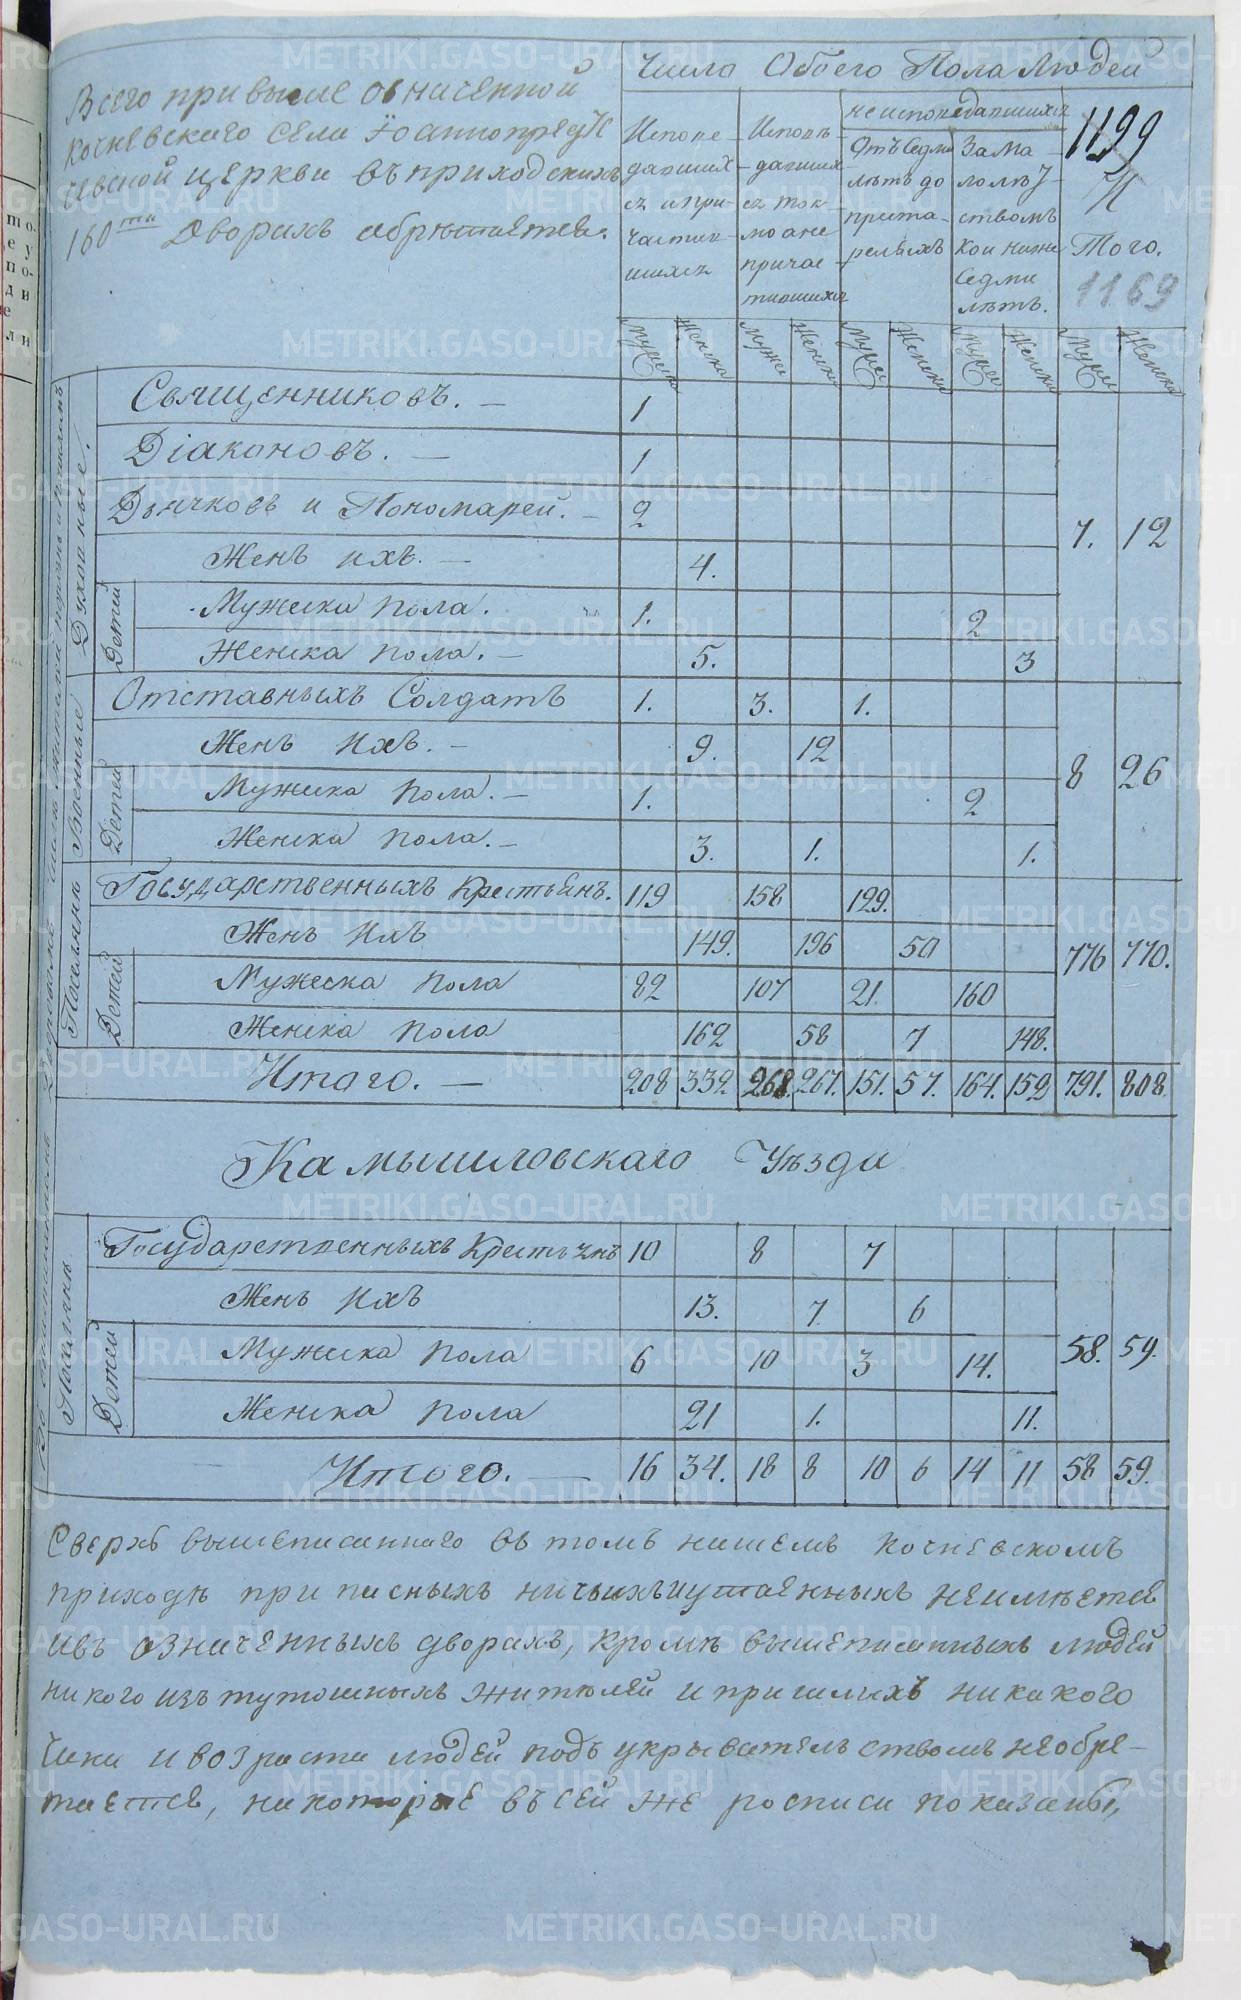 Число Обоего Пола Людей
Всего при выше означенной
Кочневскаго села Іоаннопредте
чевской церкви въ приходскихъ
160ти дворахъ обрѣтается.
Исповѣ-
давших-
ся и при-
частив-
шихся
Исповѣ-
давших-
ся ток-
мо а не
причас
тившихся
неисповедавшихся
Отъ Седми
лѣтъ до
преста-
релыхъ
За ма-
лолѣт-
ствомъ
кои ниже
Седми
лѣтъ.
1199
Того.
1169
Мужска Женска Мужс Женска Мужс Женска Мужс Женска Мужс Женска
Духовные.
Священниковъ. — 1
Діаконовъ. — 1
Дьячковъ и Пономарей. — 2
7. 12
Женъ ихъ. — 4.
Детей
Мужска пола. 1. 2
Женска пола. — 5. 3
Военные
Отставныхъ Солдатъ 1. 3. 1.
Женъ Ихъ. — 9. 12
8 26
Детей
Мужска пола. — 1. 2
Женска пола. — 3. 1. 1.
Поселяне
Государственныхъ Крестьянъ. 119 158 129.
Женъ Ихъ 149. 196 50
776 770.
Детей
Мужеска пола 82 107 21. 160
Женска пола 162 58 7 148.
Итого. — 208 332 268. 267. 151. 57. 164. 152 791. 808.
Камышловскаго Уѣзда
Поселяне
Государственныхъ Крестьянъ 10 8 7
Женъ Ихъ 13. 7. 6
58. 59.
Детей
Мужска пола 6 10 3 14.
Женска пола 21 1. 11.
Итого. — 16 34. 18 8 10 6 14 11 58 59.
Сверхъ вышеписаннаго въ томъ нашемъ Кочневскомъ
приходѣ приписныхъ ничьихъ и утаенныхъ не имѣется
и въ означенныхъ дворахъ, кромѣ вышеписанныхъ людей
никого изъ тутошныхъ жителей и пришлыхъ никакого
чина и возраста людей подъ укрывательствомъ не обре-
тается, а которые въ сей же росписи показаны,
METRIKI.GASO-URAL.RU